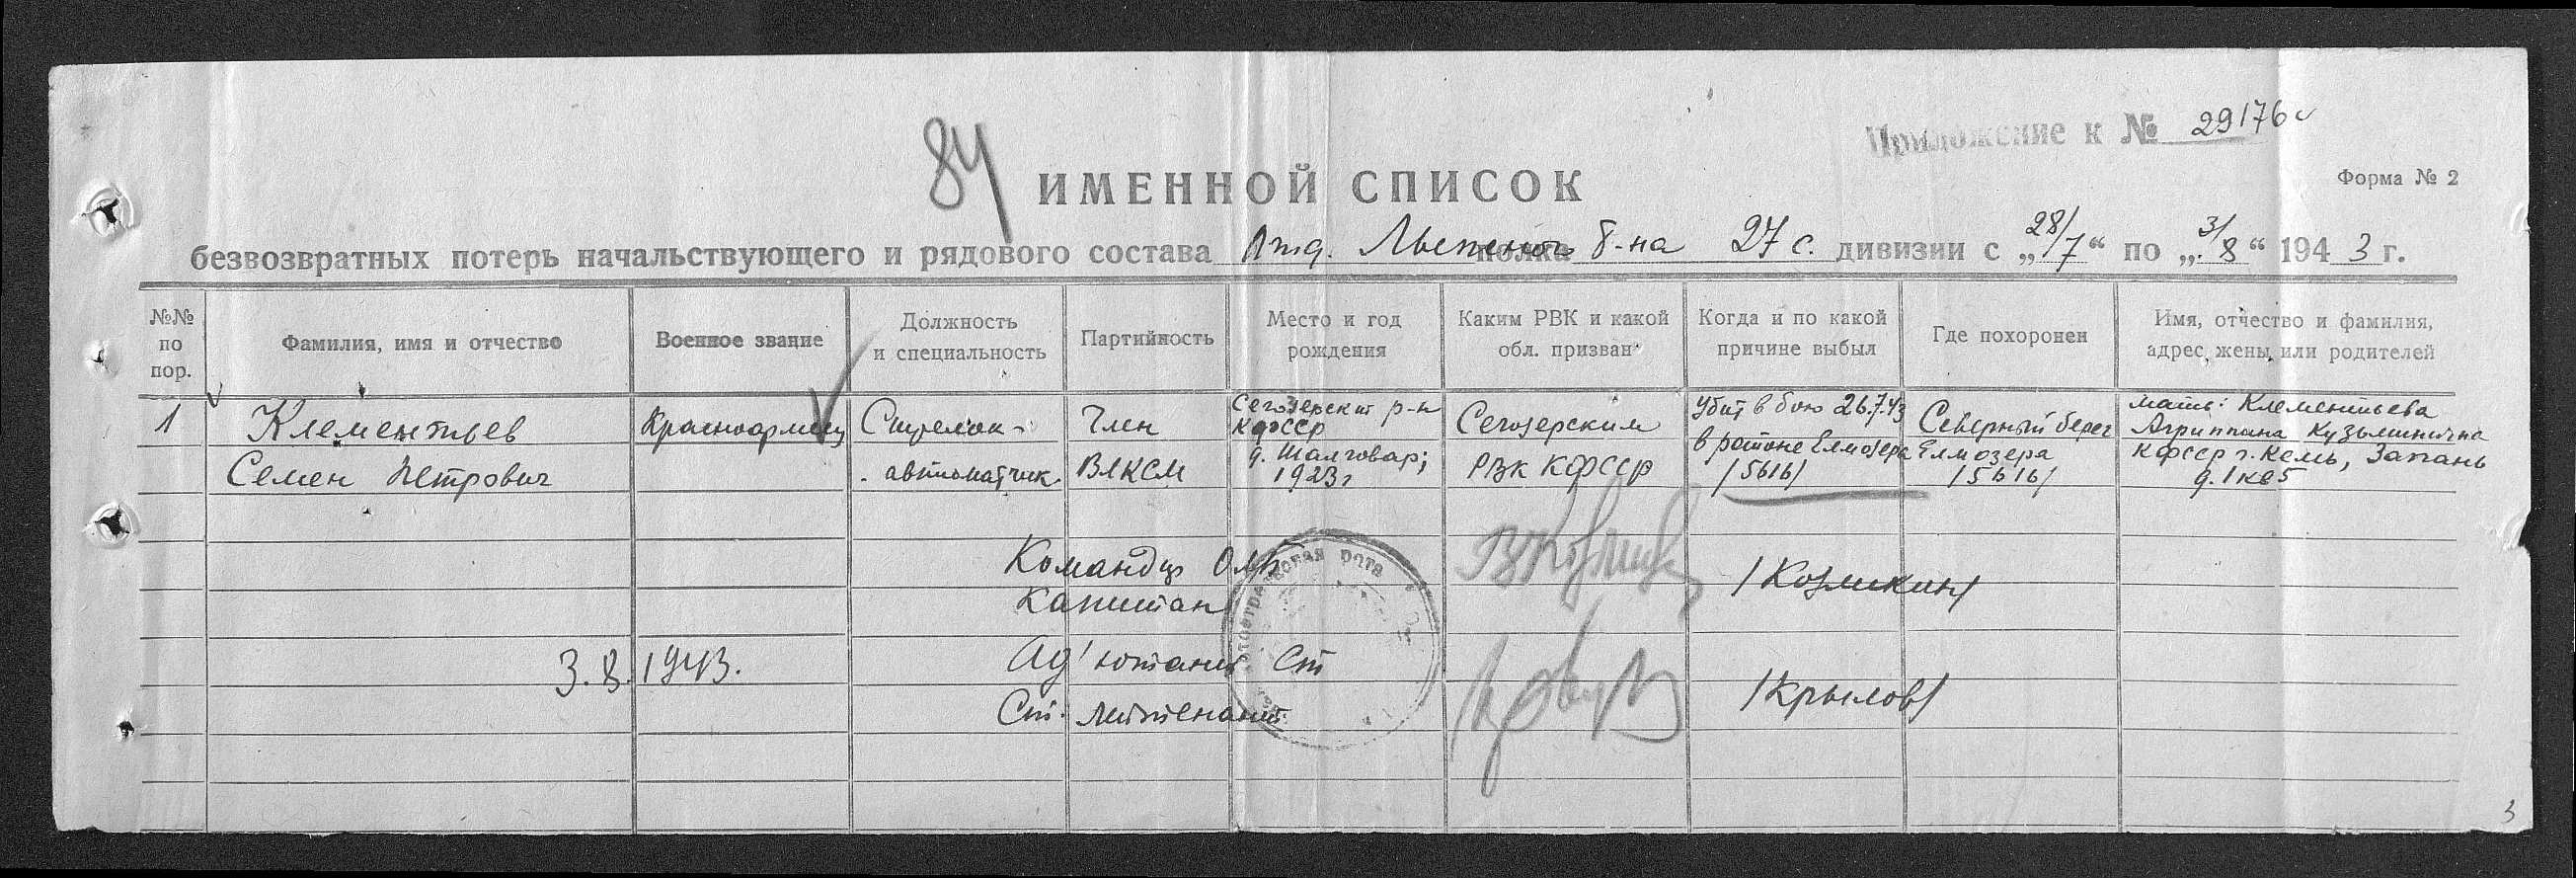 Приложение к № 29176с
84
ИМЕННОЙ СПИСОК
Форма № 2
безвозвратных потерь начальствующего и рядового состава Отд. Лыжного полка б-на 27 с. дивизии с „28/7“ по „3/8“ 1943 г.
№№ по пор.
Фамилия, имя и отчество
Военное звание
Должность и специальность
Партийность
Место и год рождения
Каким РВК и какой обл. призван
Когда и по какой причине выбыл
Где похоронен
Имя, отчество и фамилия, адрес жены или родителей
1
Клементьев
Семен Петрович
Красноармеец
Стрелок-
автоматчик
Член
ВЛКСМ
Сегозерский р-н
КФССР
д. Шалговар;
1923г
Сегозерским
РВК КФССР
Убит в бою 26.7.43
в районе Елмозера
/5616/
Северный берег
Елмозера
/5616/
мать: Клементьева
Агриппина Кузьминична
КФССР г. Кемь, Запань
д. 1 кв 5
Командир ОЛБ
Капитан
/Козликин/
3.8.1943.
Ад'ютант Ст
Ст. лейтенант
/Крылов/
рота
3